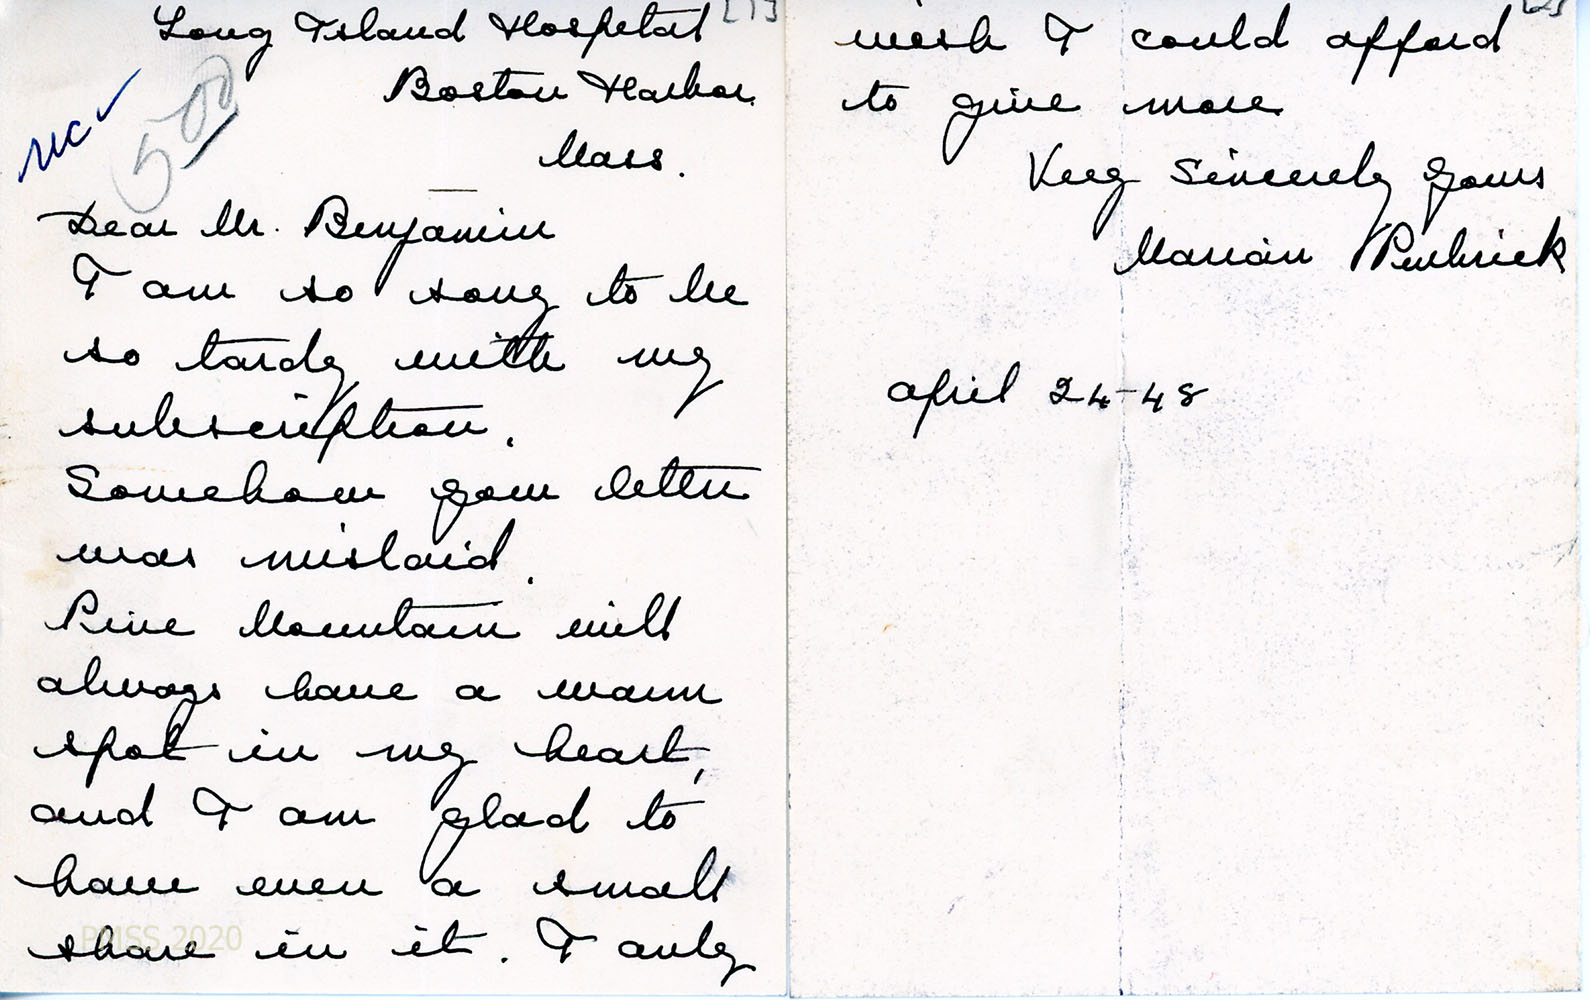 [1]
Long Island Hospital
Boston Harbor.
Mass.
5.00
Dear Mr. Benjamin
I am so sorry to be
so tardy with my
subscription.
Somehow your letter
was mislaid.
Pine Mountain will
always have a warm
spot in my heart,
and I am glad to
have even a small
share in it. I only
PMSS 2020
[2]
wish I could afford
to give more.
Very Sincerely yours
Marian Penbrick
April 24-48